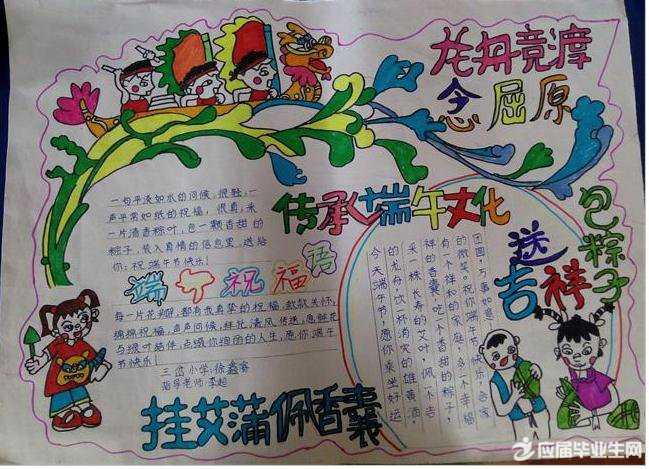 龙舟竞渡
念屈原
传承端午文化
包粽子
送
吉祥
一句平淡如水的问候，很轻，一
声平常如纸的祝福，很真，采
一片清香粽叶，包一颗香甜的
粽子，装入真情的信息里，送给
你：祝端午节快乐！
端午祝福语
每一片花瓣，都有我真挚的祝福，款款关怀，
绵绵祝福，声声问候，拜托清风传送，愿鲜花
与绿叶结伴，点缀你绚丽的人生，愿你端午
节快乐！
三 小学：徐鑫
指导老师：李超
今天端午节，愿你乘坐好运
的龙舟，饮杯消灾的雄黄酒，
采一株长寿的艾叶，佩一个吉
祥的香囊，吃个香甜的粽子，
有一个祥和的家庭，多个幸福
的微笑，祝你端午节快乐，合家
团圆，万事如意！
挂艾蒲佩香囊
应届毕业生网